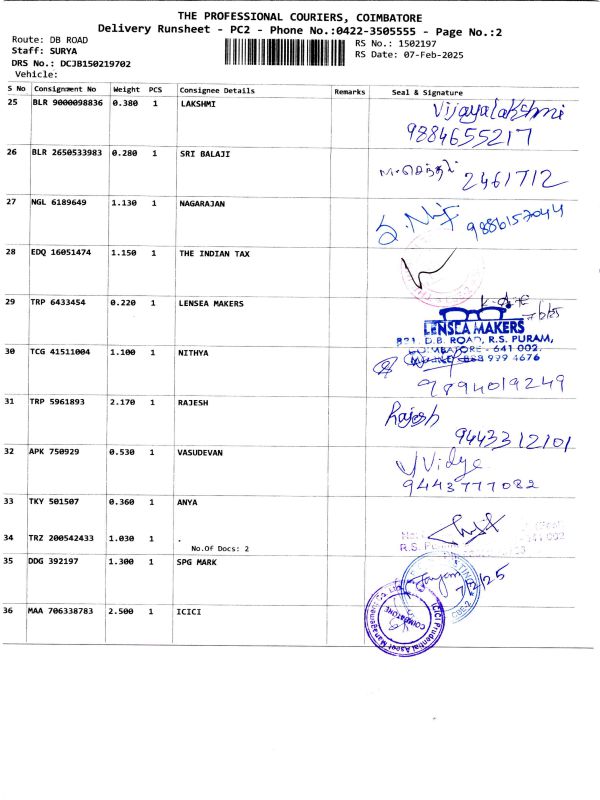 THE PROFESSIONAL COURIERS, COIMBATORE
Delivery Runsheet - PC2 - Phone No.:0422-3505555 - Page No.:2
Route: DB ROAD
RS No.: 1502197
Staff: SURYA
RS Date: 07-Feb-2025
DRS No.: DCJB150219702
Vehicle:
S No Consignment No Weight PCS Consignee Details Remarks Seal & Signature
25 BLR 9000098836 0.380 1 LAKSHMI Vijayalakshmi
9884655217
26 BLR 2650533983 0.280 1 SRI BALAJI
2461712
27 NGL 6189649 1.130 1 NAGARAJAN
9886157044
28 EDQ 16051474 1.150 1 THE INDIAN TAX
29 TRP 6433454 0.220 1 LENSEA MAKERS
LENSEA MAKERS
821, D.B. ROAD, R.S. PURAM,
COIMBATORE - 641 002.
30 TCG 41511004 1.100 1 NITHYA
9894019249
31 TRP 5961893 2.170 1 RAJESH Rajesh
9443312101
32 APK 750929 0.530 1 VASUDEVAN Vidya
9443777082
33 TKY 501507 0.360 1 ANYA
34 TRZ 200542433 1.030 1 .
No.Of Docs: 2
R.S.
35 DDG 392197 1.300 1 SPG MARK
7/2/25
36 MAA 706338783 2.500 1 ICICI
ICICI Prudential Asset Management Co. Ltd.
COIMBATORE